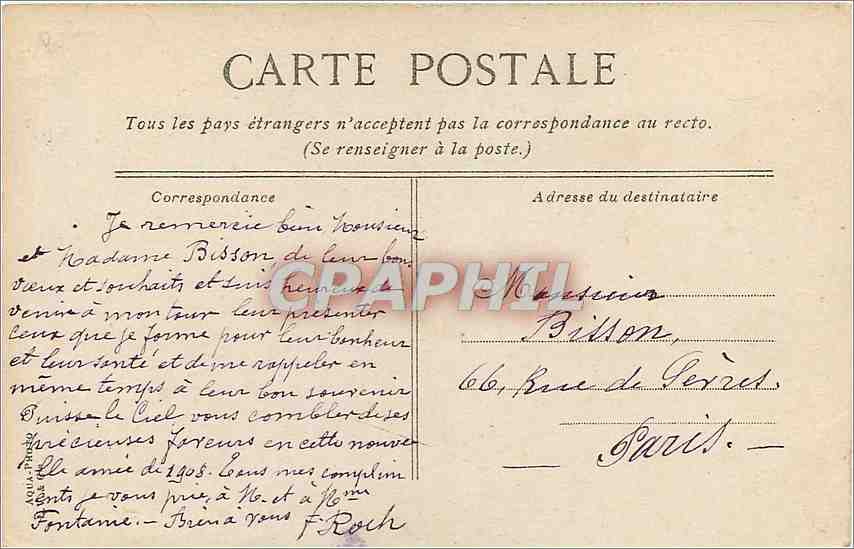 CARTE POSTALE
Tous les pays étrangers n'acceptent pas la correspondance au recto.
(Se renseigner à la poste.)
Correspondance
Je remercie bien Monsieur
et Madame Bisson, de leur bons
vœux et souhaits et suis heureux de
venir à mon tour leur présenter
ceux que je forme pour leur bonheur
et leur santé et de me rappeler en
même temps à leur bon souvenir
Puisse le Ciel vous combler de ses
précieuses faveurs en cette nouve
lle année de 1908. Tous mes complim
ents je vous prie, à M. et à Mme
Fontaine. – Bien à vous F. Roch
AQUA-PHOTO
Adresse du destinataire
Monsieur
Bisson,
66, Rue de Sèvres.
Paris. –
CPAPHIL